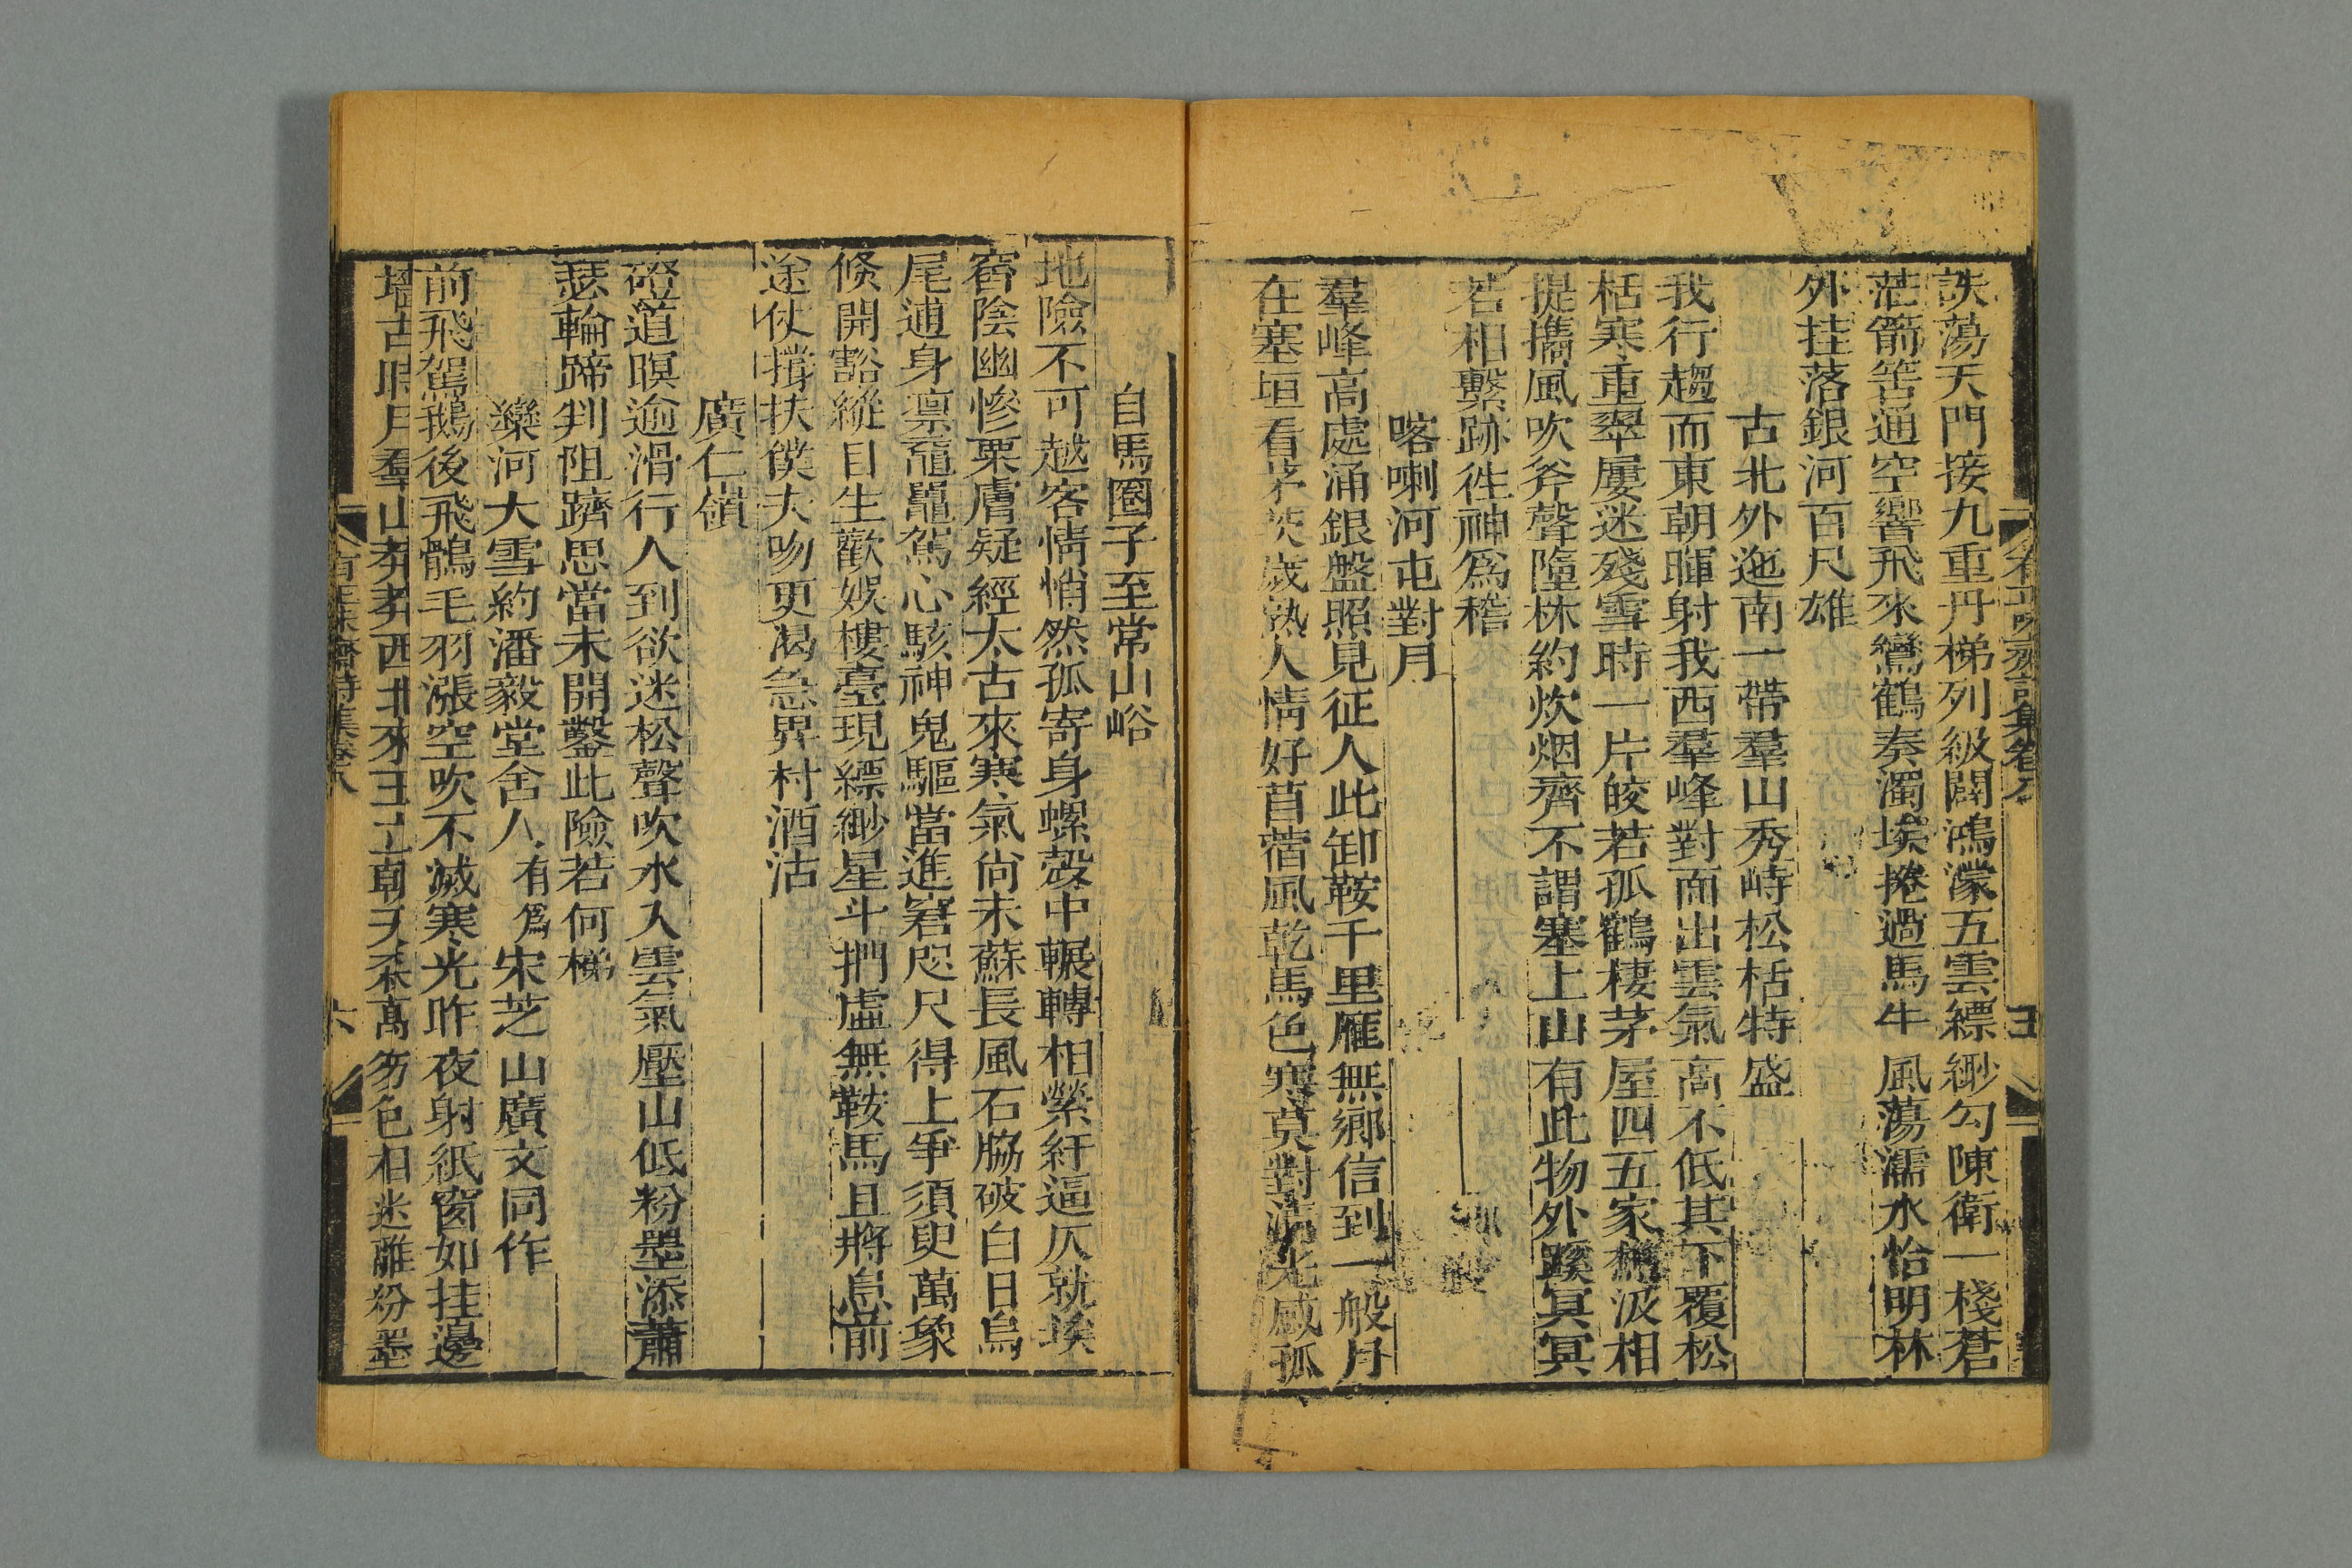 詄蕩天門接九重丹梯列級闢鴻濛五雲縹緲勾陳衛一棧蒼
茫箭筈通空響飛來鸞鶴奏濁埃捲過馬牛風蕩濡水怡明林
外挂落銀河百尺雄
古北外迤南一帶羣山秀峙松栝特盛
我行趨而東朝暉射我西羣峰對面出雲氣高不低其下覆松
栝寒重翠屢迷殘雪時一片皎若孤鶴棲茅屋四五家樵汲相
提攜風吹斧聲墮林約炊烟齊不謂塞上山有此物外蹊冥冥
若相繫跡徃神爲稽
喀喇河屯對月
羣峰高處涌銀盤照見征人此卸鞍千里雁無鄉信到一般月
在塞垣看茅茨歲熟人情好苜蓿風乾馬色寒莫對光感孤
自馬圈子至常山峪
地險不可越客情悄然孤寄身螺殼中輾轉相縈紆逼仄就埃
窞陰幽慘栗膚疑經太古來寒氣尙未蘇長風石脇破白日烏
尾逋身凛黿鼉駕心駭神鬼驅當進窘咫尺得上爭須臾萬象
倐開豁縱目生歡娛樓臺現縹緲星斗捫虛無鞍馬且將息前
途仗撐扶僕夫吻更渴急界村酒沽
廣仁嶺
磴道暝逾滑行人到欲迷松聲吹水入雲氣壓山低粉墨添蕭
瑟輪蹄判阻躋思當未開鑿此險若何梯
灤河大雪約潘毅堂舍人有爲宋芝山廣文同作
前飛駕鵝後飛鶻毛羽漲空吹不滅寒光昨夜射紙窗如挂邊
墻古時月羣山夯夯西北來玉立朝天森萬笏色相迷離粉墨
有正味齋詩集卷八 六